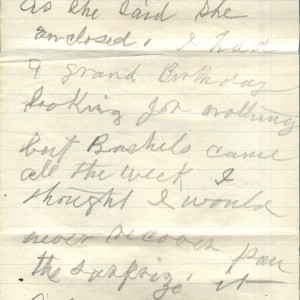 as she said she
enclosed. I had
a grand Birthday
looking for nothing
but Bushels came
all the week I
thought I would
never recover from
the surprize, it